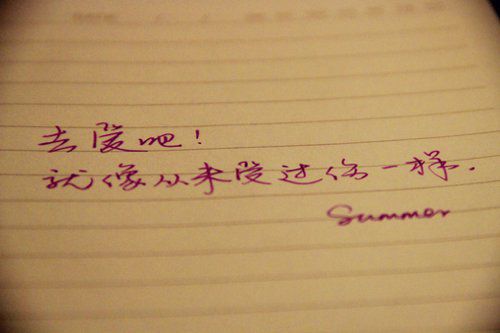 去爱吧！
就像从来受过伤一样.
Summer